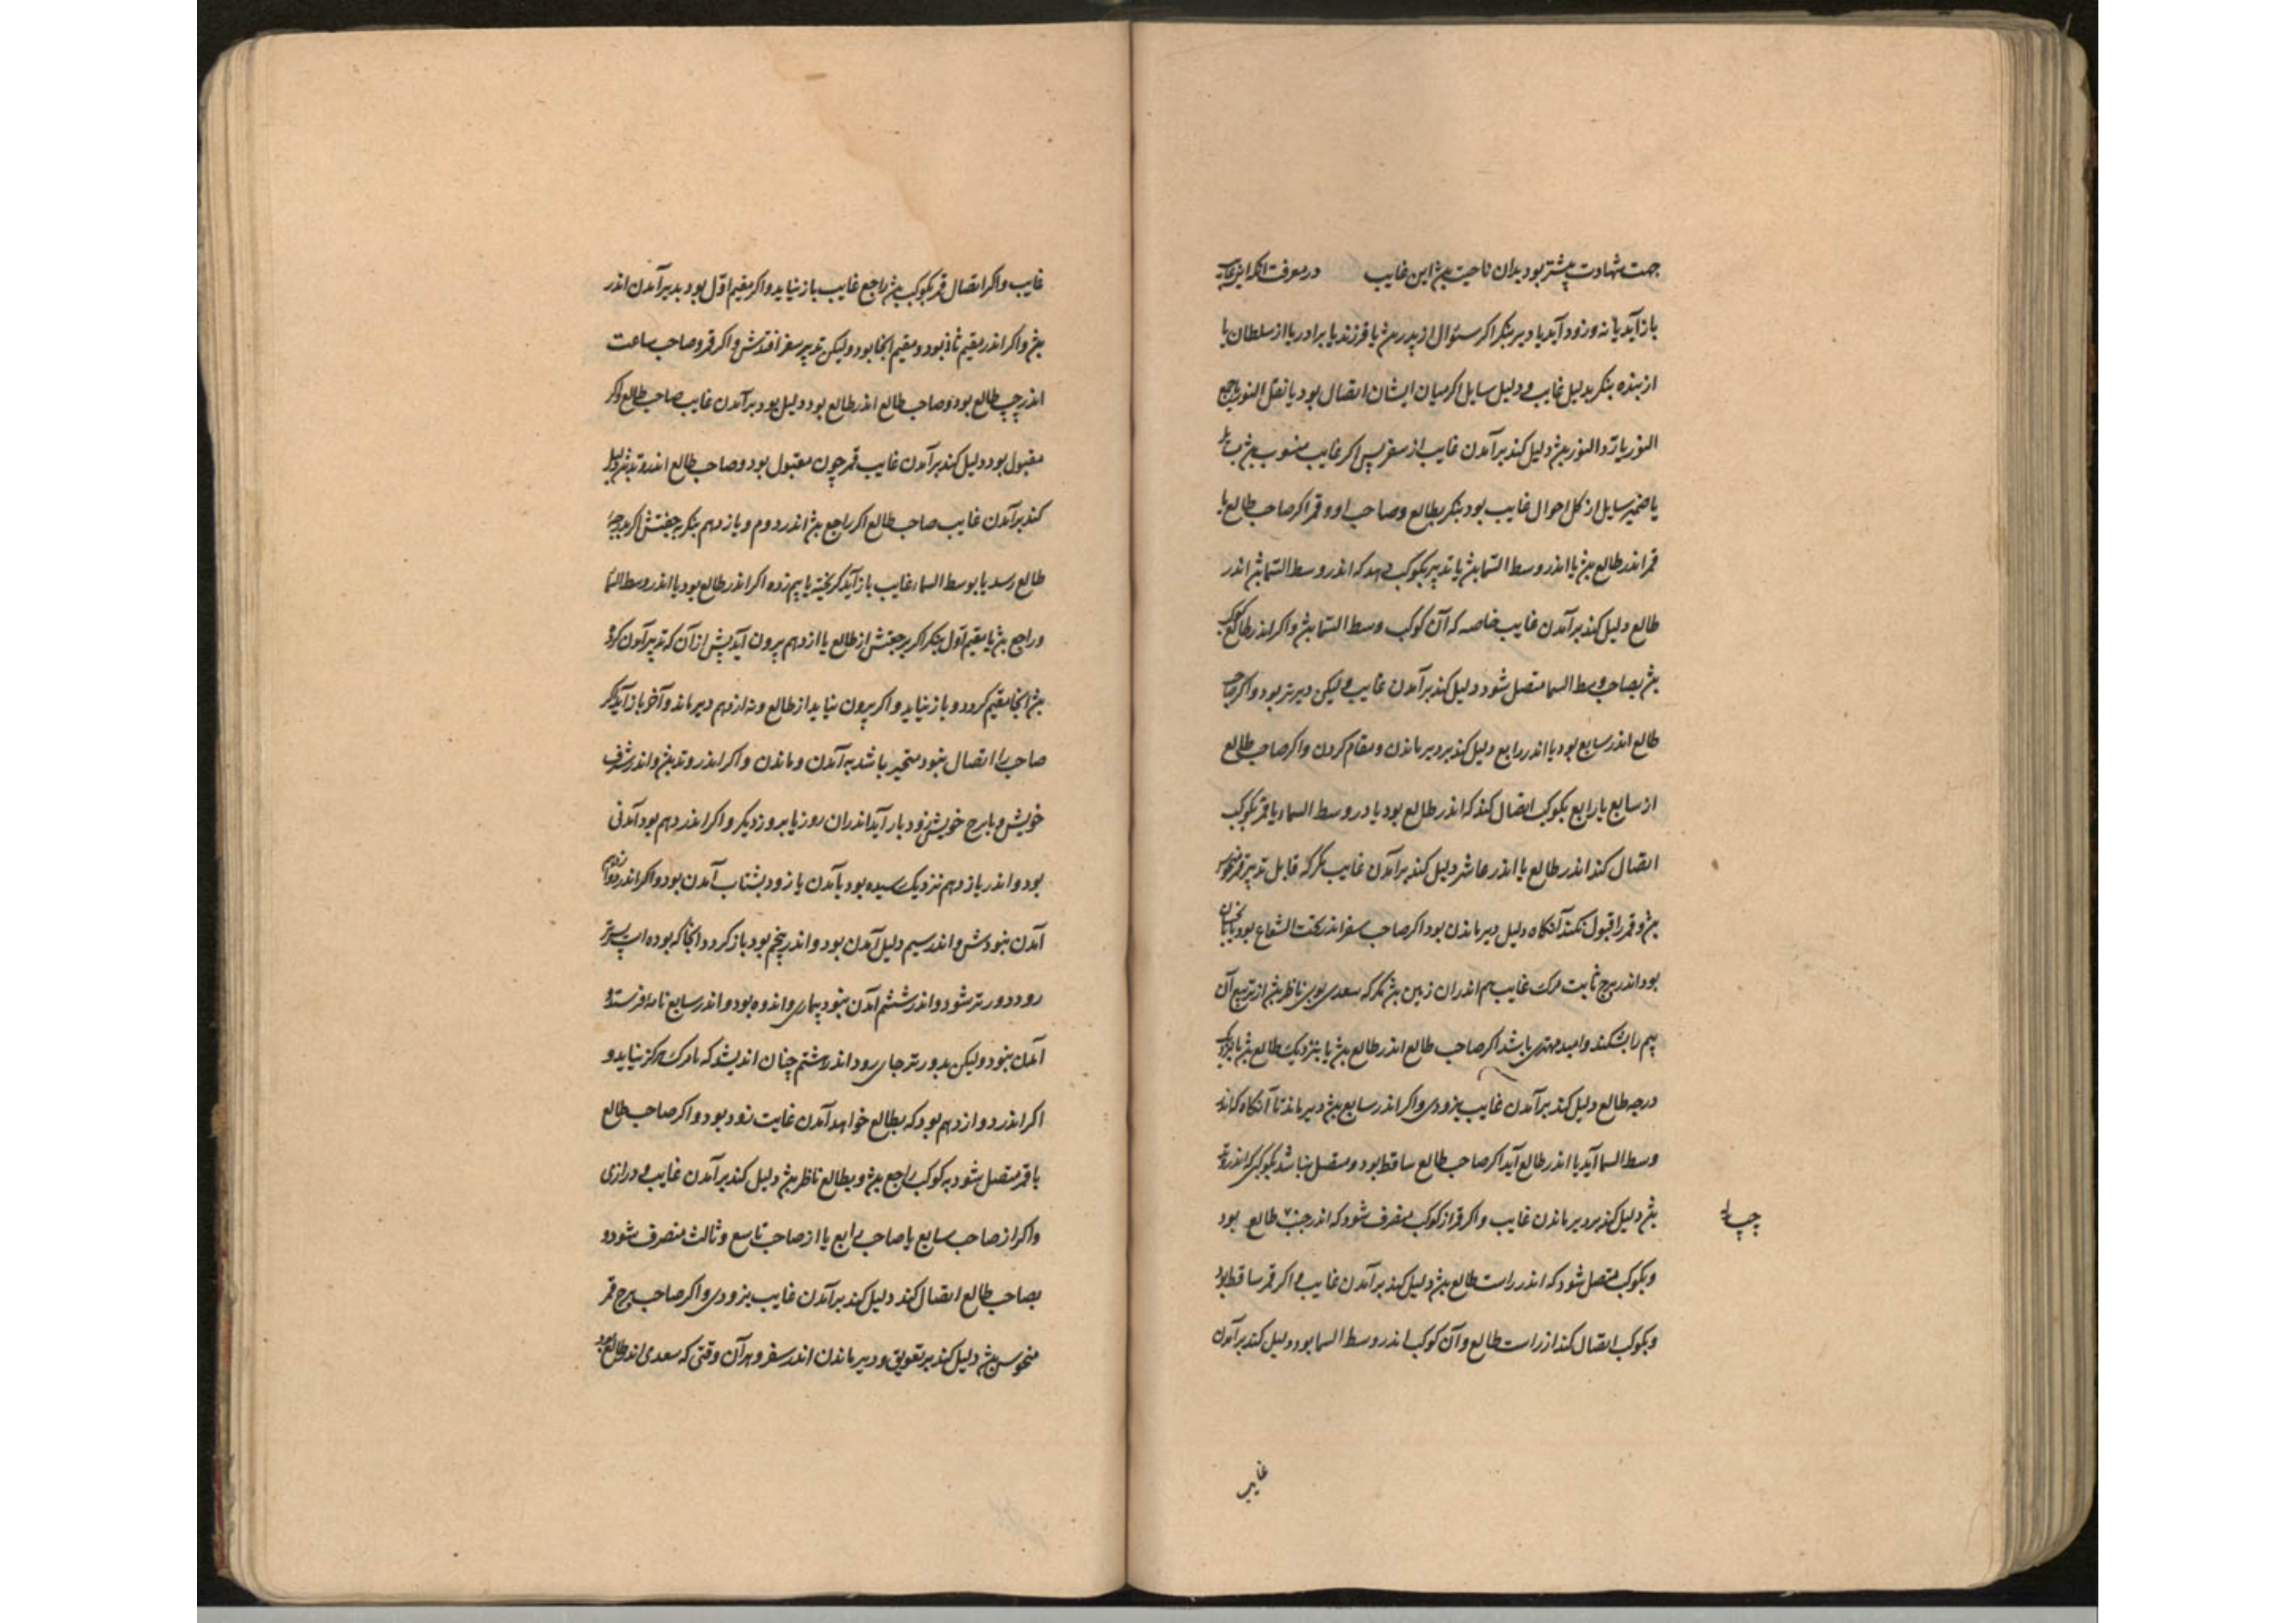 جهت شهادت بیشتر بود بدان ناحیت بیژ این غایب در معرفت انکه این غایب
باز آید یا نه و زود آید یا دیر بنکر اکر سئوال از پدر بیژ یا فرزند یا برادر یا از سلطان یا
از بنده بنکر بدلیل غایب و دلیل سایل اکر میان ایشان اتصال بود یا نقل النور یا جمع
النور یا رد النور بیژ دلیل کند بر آمدن غایب از سفر پس اکر غایب منسوب بیژ
یا ضمیر سایل از کل احوال غایب بود بنکر بطالع و صاحب او و قمر اکر صاحب طالع یا
قمر اندر طالع بیژ یا اندر وسط السما بیژ یا تدبیر بکوکب دهد که اندر وسط السما بیژ اندر
طالع دلیل کند بر آمدن غایب خاصه که آن کوکب وسط السما بیژ و اکر اندر طالع کوکب
بیژ بصاحب وسط السما متصل شود دلیل کند بر آمدن غایب و لیکن دیرتر بود و اکر صاحب
طالع اندر سابع بود یا اندر رابع دلیل کند بر دیر ماندن و مقام کردن و اکر صاحب طالع
از سابع یا رابع بکوکب اتصال کند که اندر طالع بود یا در وسط السماء یا قمر بکوکب
اتصال کند اندر طالع یا اندر عاشر دلیل کند بر آمدن غایب مکر که قابل تدبیر قمر
بیژ و قمر را قبول نکند آنکاه دلیل دیر ماندن بود اکر صاحب سفر اندر تحت الشعاع بود
بود اندر برج ثابت مرک غایب هم اندران زمین بیژ مکر که سعدی بوی ناظر بیژ از تربیع آن
بیم را بشکند و امید مهتری باشد اکر صاحب طالع اندر طالع بیژ یا بنزدیک طالع بیژ
درجه طالع دلیل کند بر آمدن غایب بزودی و اکر اندر سابع بیژ دیر ماند تا آنکاه که اندر
وسط السما آید یا اندر طالع آید اکر صاحب طالع ساقط بود و متصل نباشد بکوکبی که اندر وتد
بیژ دلیل کند بر دیر ماندن غایب و اکر قمر از کوکب منصرف شود که اندر چپ طالع بود
و بکوکب متصل شود که اندر راست طالع بیژ دلیل کند بر آمدن غایب و اکر قمر ساقط بود
و بکوکب اتصال کند از راست طالع و آن کوکب اندر وسط السما بود دلیل کند بر آمدن
غایب
غایب و اکر اتصال قمر بکوکب بیژ راجع غایب باز نیاید و اکر مقیم اول بود بدیر آمدن اندر
بیژ و اکر اندر مقیم ثانی بود و مقیم آنجا بود و لیکن تدبیر سفر افتدش و اکر قمر و صاحب ساعت
اندر چپ طالع بود و صاحب طالع اندر طالع بود دلیل بود بر آمدن غایب صاحب طالع اکر
مقبول بود دلیل کند بر آمدن غایب قمر چون مقبول بود و صاحب طالع اندر وتد بیژ دلیل
کند بر آمدن غایب صاحب طالع اکر راجع بیژ اندر دوم و یازدهم بنکر بجفتش اکر بدرجه
طالع رسد یا بوسط السماء غایب باز آید کریخته یا بیم زده اکر اندر طالع بود یا اندر وسط السما
و راجع بیژ یا مقیم اول بنکر اکر برجفتش از طالع یا از دهم بیرون آید پیش از آن که تدبیر آمدن کرده
بیژ آنجا مقیم کردد و باز نیاید و اکر بیرون نیاید از طالع و نه از دهم دیر ماند و آخر باز آید اکر
صاحب را اتصال نبود متحیر باشد به آمدن و ماندن و اکر اندر وتد بیژ و اندر شرف
خویش و یا برج خویش زود باز آید اندران روز یا بروز دیکر و اکر اندر دهم بود آمدنی
بود و اندر یازدهم نزدیک رسیده بود بآمدن یا زود بشتاب آمدن بود و اکر اندر دوازدهم
آمدن نبودش و اندر سیم دلیل آمدن بود و اندر پنجم بود باز کردد آنجا که بوده است پستر
رود دورتر شود و اندر ششم آمدن نبود بیماری و اندوه بود و اندر سابع نامه فرستد و
آمدن نبود و لیکن بدورتر جای رود اندر هشتم چنان اندیشد که نامرک هرکز نیاید و
اکر اندر دوازدهم بود که بطالع خواهد آمدن غایت زود بود و اکر صاحب طالع
با قمر متصل شود به کوکب راجع بیژ و بطالع ناظر بیژ دلیل کند بر آمدن غایب و درازی
و اکر از صاحب سابع یا صاحب رابع یا از صاحب تاسع و ثالث منصرف شود و
بصاحب طالع اتصال کند دلیل کند بر آمدن غایب بزودی و اکر صاحب برج قمر
منحوس بیژ دلیل کند بر تعویق و دیر ماندن اندر سفر و هر آن وقتی که سعدی اندر طالع بود